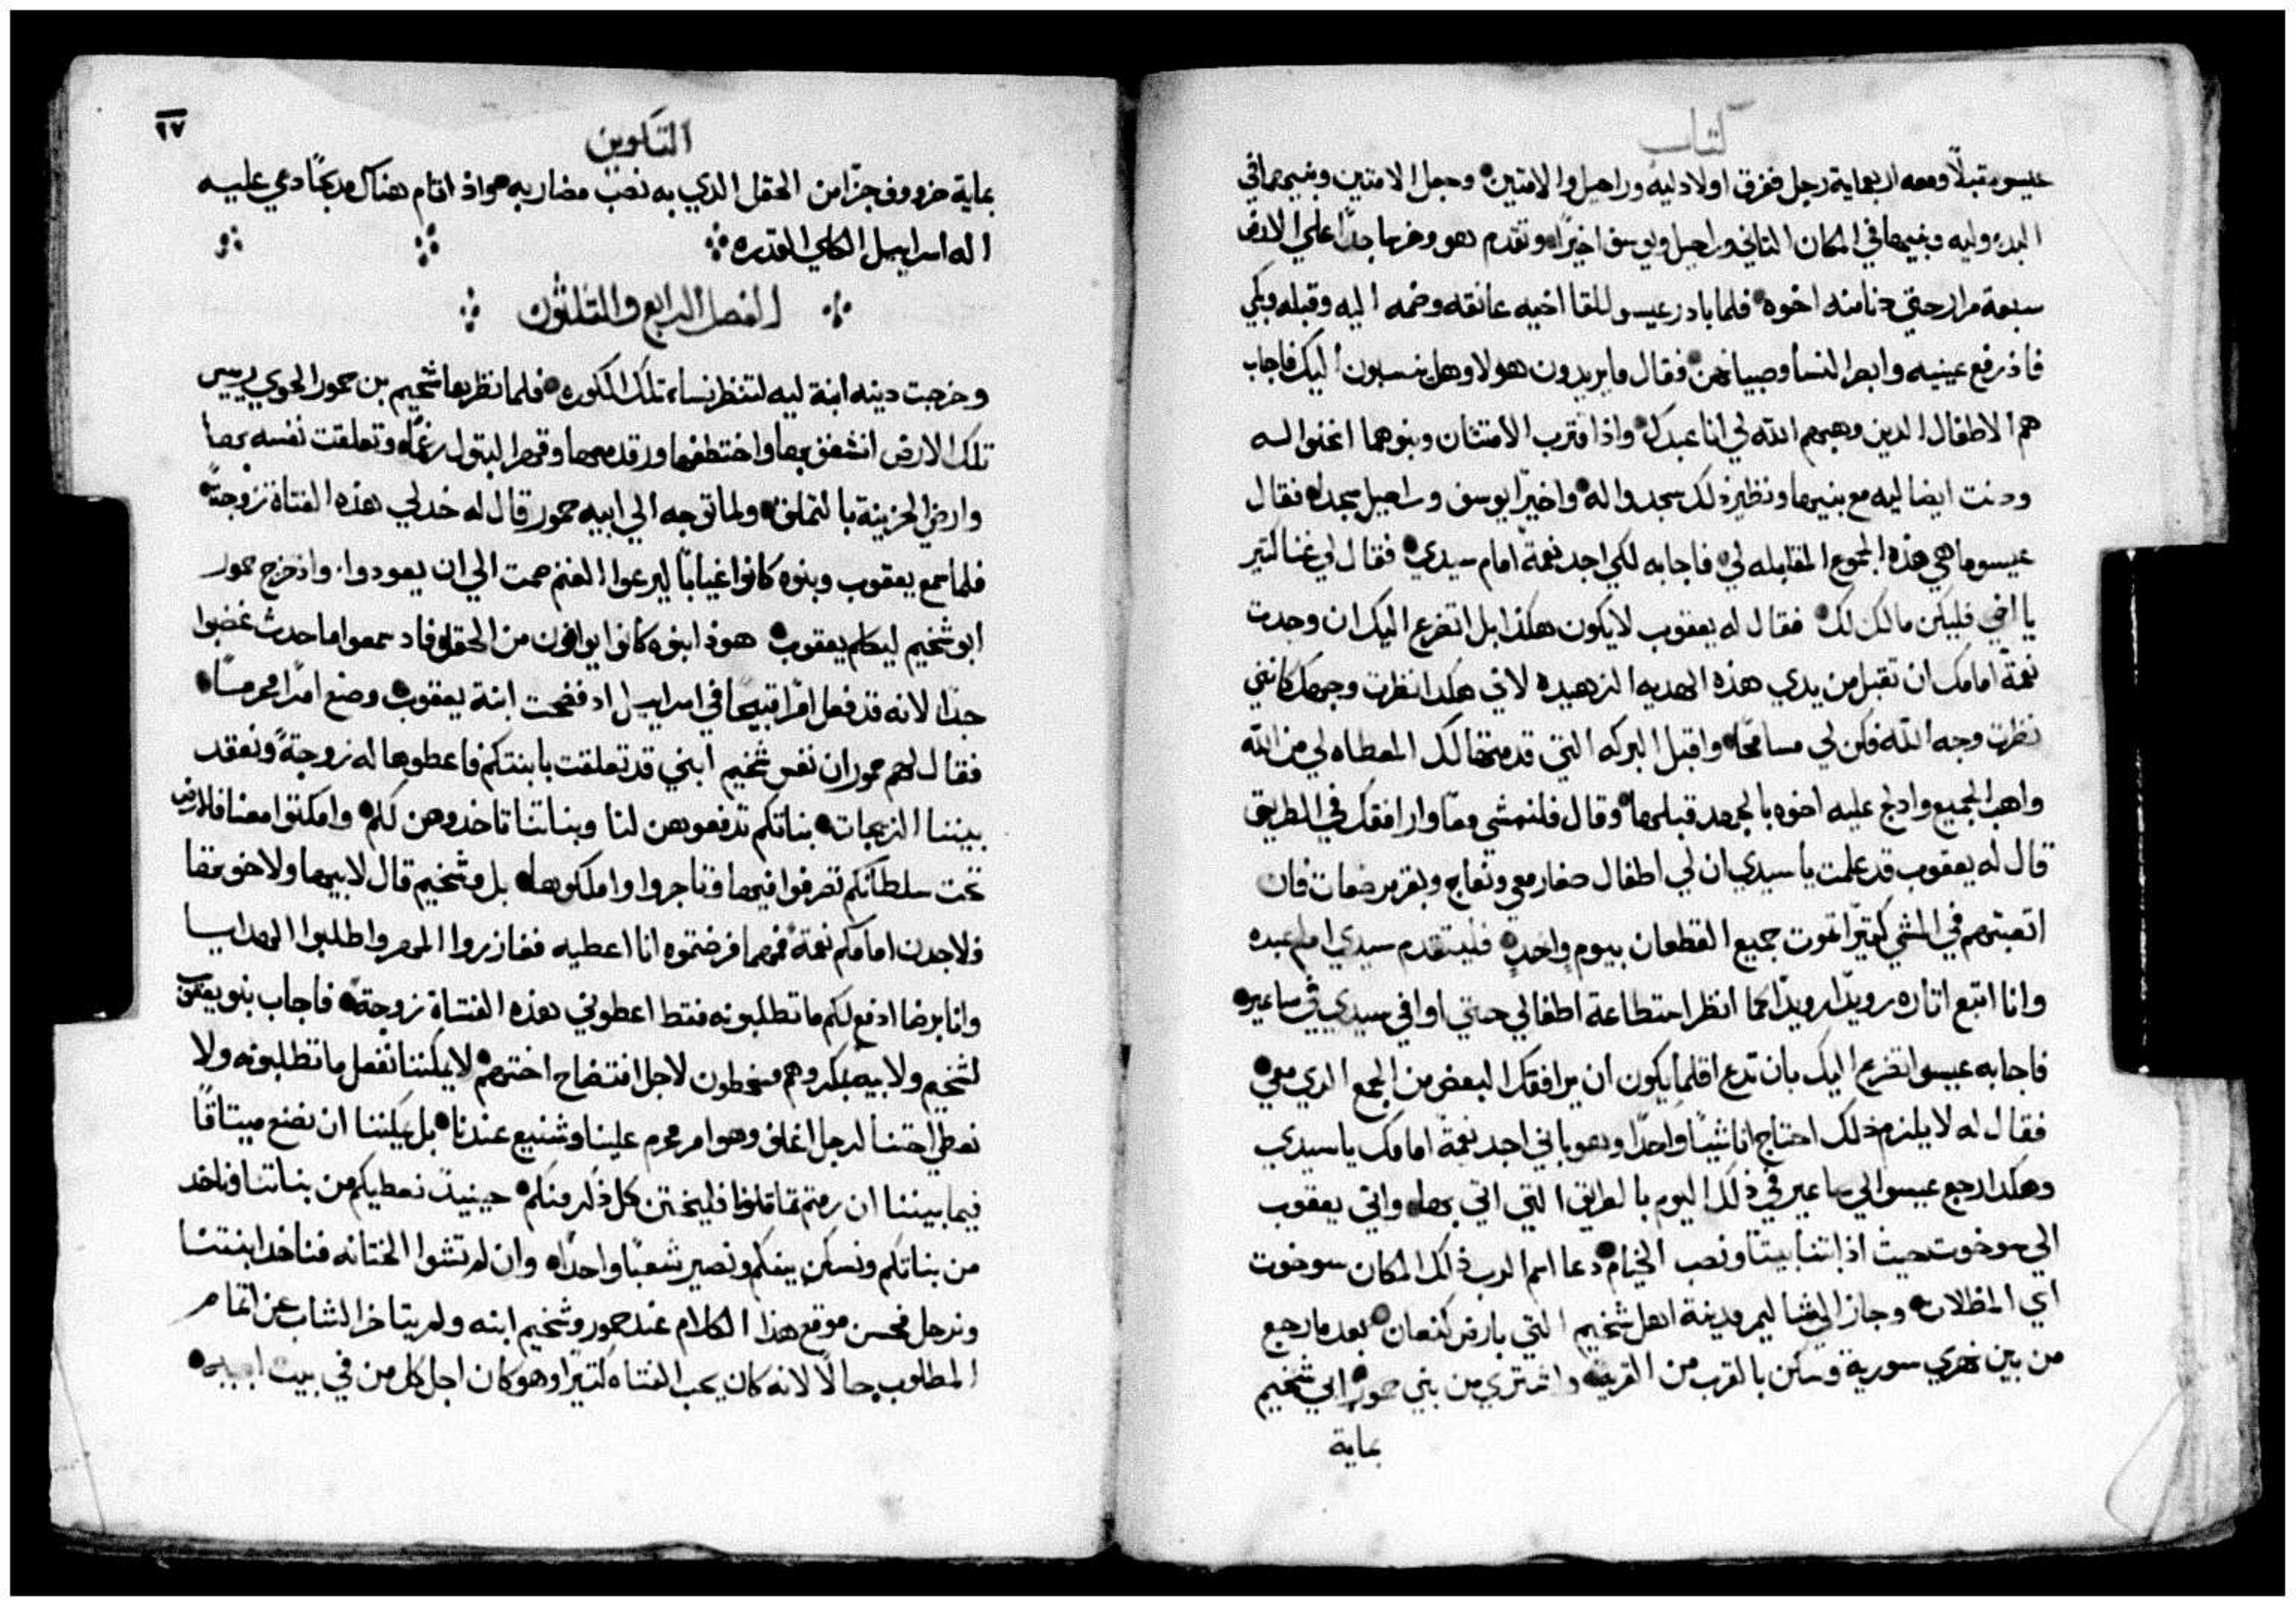 كتاب
عيسو مقبلاً ومعه اربعماية رجل ففرق اولاد ليه وراحيل والامتين وجعل الامتين وبنيهما في
البدء وليه وبنيها في المكان الثاني وراحيل ويوسف اخيرًا وتقدم هو وخر ساجدًا علي الارض
سبعة مرار حتي دنا منه اخوه فلما بادر عيسو للقا اخيه عانقه وضمه اليه وقبله وبكي
فاذ رفع عينيه وابصر النسا وصبيانهن فقال ما يريدون هولا وهل ينسبون اليك فاجاب
هم الاطفال الدين وهبهم الله لي انا عبدك واذ اقترب الامتان وبنوهما انحنوا له
ودنت ايضا ليه مع بنيها ونظير ذلك سجدوا له واخيرًا يوسف وراحيل سجدا فقال
عيسو ما هي هذه الجموع المقابله لي فاجابه لكي اجد نعمة امام سيدي فقال لي غنا كتير
يا اخي فليكن مالك لك فقال له يعقوب لا يكون هكذا بل اتضرع اليك ان وجدت
نعمة امامك ان تقبل من يدي هذه الهديه الزهيده لاني هكدا نظرت وجهك كانني
نظرت وجه الله فكن لي مسامحًا واقبل البركه التي قدمتها لك المعطاه لي من الله
واهب الجميع واد لج عليه اخوه بالجهد قبلها وقال فلنمشي معًا وارافقك في الطريق
قال له يعقوب قد علمت يا سيدي ان لي اطفال صغار معي ونعاج وبقر مرضعات فان
اتعبتهم في المشي كتيرًا تموت جميع القطعان بيوم واحد فليتقدم سيدي امام عبده
وانا اتبع اتاره رويدًا رويدًا كما انظر استطاعة اطفالي حتي اوافي سيدي في ساعير
فاجابه عيسو اتضرع اليك بان تدع اقلما يكون ان يرافقك البعض من الجمع الدي معي
فقال له لا يلزم ذلك احتاج انا شيًا واحدًا وهو باني اجد نعمة امامك يا سيدي
وهكدا رجع عيسو الي ساعير في ذلك اليوم بالطريق التي اتي بها واتي يعقوب
الي سوخوت حيث اذ ابتنا بيتًا ونصب الخيام دعا اسم الدب ذلك المكان سوخوت
اي المظلات وجاز الي شاليم مدينة اهل شخيم التي بارض كنعان بعد ما رجع
من بين نهري سورية وسكن بالقرب من القريه واشتري من بني حمور ابي شخيم
بماية
٦٧
التكوين
بماية خروف جزًا من الحقل الدي به نصب مضاربه واذ اقام هناك مدبحًا دعي عليه
اله اسراييل الكلي القدره
الفصل الرابع والتلتون
وخرجت دينه ابنة ليه لتنظر نساء تلك الكوره فلما نظرها شخيم بن حمور الحوي رييس
تلك الارض انشغف بها واختطفها ورقد معها وقهر البتول رغمًا وتعلقت نفسه بها
وارضي الحزينة بالتملق ولما توجه الي ابيه حمور قال له خد لي هذه الفتاة زوجةً
فلما سمع يعقوب وبنوه كانوا غيابًا ليرعوا الغنم صمت الي ان يعودوا واذ خرج حمور
ابو شخيم ليكلم يعقوب هوذا بنوه كانوا يوافون من الحقل فاد سمعوا ما حدث غضبوا
جدًا لانه قد فعل امرًا قبيحًا في اسراييل اد فضحت ابنة يعقوب وصنع امرًا محرمًا
فقال لهم حمور ان نفس شخيم ابني قد تعلقت بابنتكم فاعطوها له زوجةً ونعقد
بيننا الزيجات بناتكم تدفعوهن لنا وبناتنا تاخدوهن لكم وامكتوا معنا فالارض
تحت سلطانكم تصرفوا فيها وتاجروا واملكوها بل وشخيم قال لابيها ولاخوتها
فلاجدن امامكم نعمة فمهما فرضتموه انا اعطيه فغازروا المهر واطلبوا الهدايا
وانا برضا ادفع لكم ما تطلبونه فقط اعطوني هذه الفتاة زوجة فاجاب بنو يعقوب
لشخيم ولابيه بمكر وهم مسخطون لاجل افتضاح اختهم لا يمكننا نفعل ما تطلبونه ولا
نعطي اختنا لرجل اغلف وهو امر محرم علينا وشنيع عندنا بل يمكننا ان نضع ميتاقًا
فيما بيننا ان رمتم تماتلونا فليختتن كل ذكر منكم حينيذ نعطيكم من بناتنا وناخد
من بناتكم ونسكن بينكم ونصير شعبًا واحدًا وان لم تشوا الختانه فناخد ابنتنا
ونرحل فحسن موقع هذا الكلام عند حمور وشخيم ابنه ولم يتاخر الشاب عن اتمام
المطلوب حالاً لانه كان يحب الفتاه كتيرًا وهو كان اجل كل من في بيت ابيه